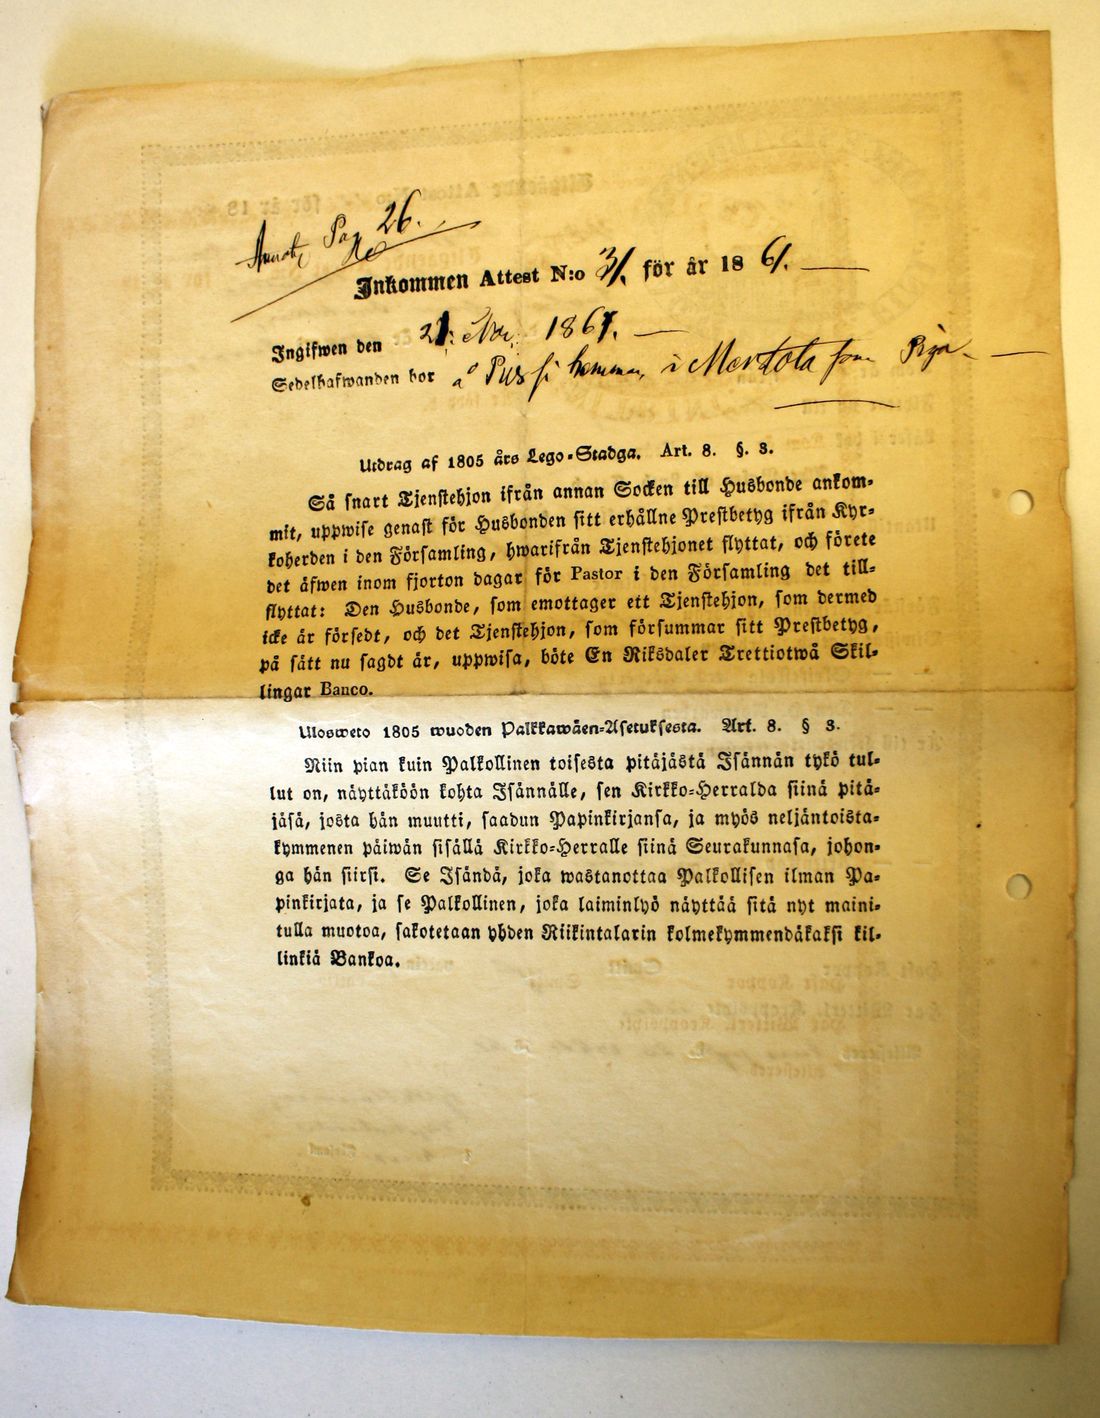 Annot. Pag. 26.
Inkommen Attest N:o 31. för år 1861.
Ingifwen den 21. Nov. 1861.
Sedelhafwanden bor å Pussi hemman, i Mertola som Piga
Utdrag af 1805 års Lego-Stadga. Art. 8. §. 3.
Så snart Tjenstehjon ifrån annan Socken till Husbonde ankom-
mit, uppwise genast för Husbonden sitt erhållne Prestbetyg ifrån Kyr-
koherden i den Församling, hwarifrån Tjenstehjonet flyttat, och förete
det äfwen inom fjorton dagar för Pastor i den Församling det till-
flyttat: Den Husbonde, som emottager ett Tjenstehjon, som dermed
icke är försedt, och det Tjenstehjon, som försummar sitt Prestbetyg,
på sätt nu sagdt är, uppwisa, böte En Riksdaler Trettiotwå Skil-
lingar Banco.
Ulosweto 1805 wuoden Palkkawäen-Asetuksesta. Art. 8. § 3.
Niin pian kuin Palkollinen toisesta pitäjästä Isännän tykö tul-
lut on, näyttäköön kohta Isännälle, sen Kirkko-Herralda siinä pitä-
jäsä, josta hän muutti, saadun Papinkirjansa, ja myös neljäntoista-
kymmenen päiwän sisällä Kirkko-Herralle siinä Seurakunnasa, johon-
ga hän siirsi. Se Isändä, joka wastanottaa Palkollisen ilman Pa-
pinkirjata, ja se Palkollinen, joka laiminlyö näyttää sitä nyt maini-
tulla muotoa, sakotetaan yhden Riikintalarin kolmekymmendäkaksi kil-
linkiä Bankoa.